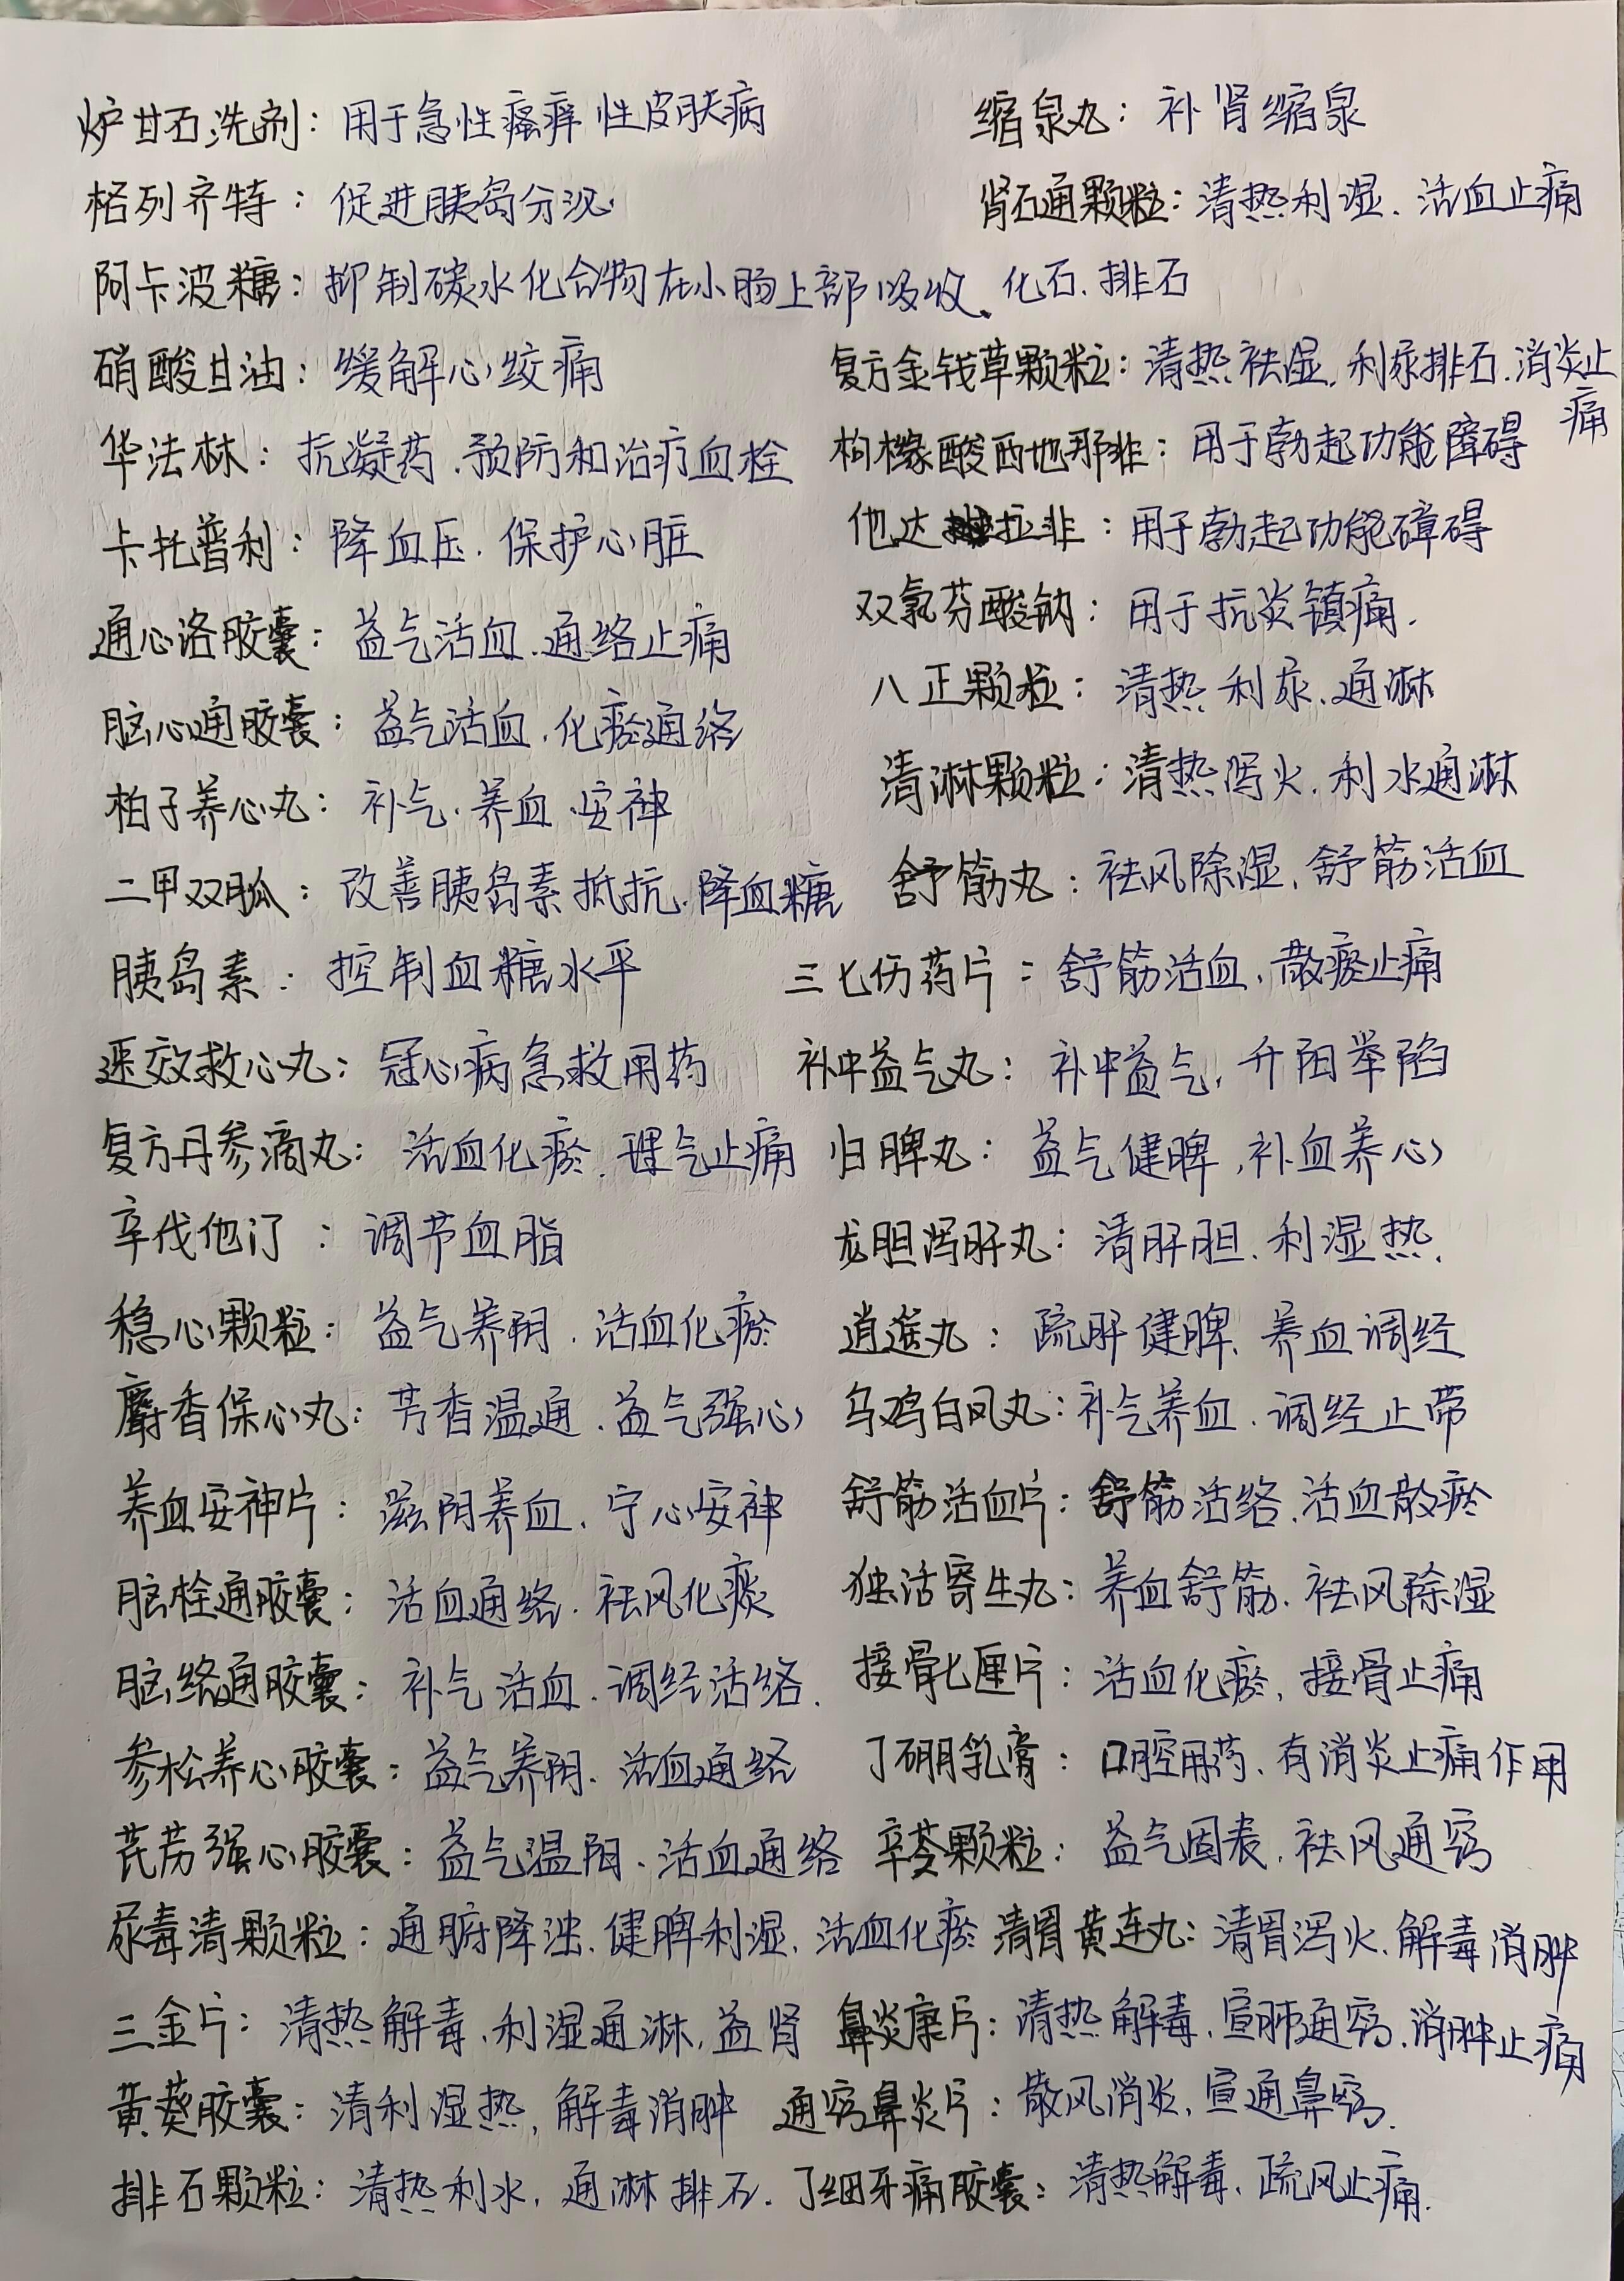 炉甘石洗剂：用于急性瘙痒性皮肤病
格列齐特：促进胰岛分泌
阿卡波糖：抑制碳水化合物在小肠上部吸收、
硝酸甘油：缓解心绞痛
华法林：抗凝药、预防和治疗血栓
卡托普利：降血压、保护心脏
通心洛胶囊：益气活血、通络止痛
脑心通胶囊：益气活血、化瘀通络
柏子养心丸：补气、养血、安神
二甲双胍：改善胰岛素抵抗、降血糖
胰岛素：控制血糖水平
速效救心丸：冠心病急救用药
复方丹参滴丸：活血化瘀、理气止痛
辛伐他汀：调节血脂
稳心颗粒：益气养阴、活血化瘀
麝香保心丸：芳香温通、益气强心
养血安神片：滋阴养血、宁心安神
脑栓通胶囊：活血通络、祛风化痰
脑络通胶囊：补气活血、调经活络、
参松养心胶囊：益气养阴、活血通络
芪苈强心胶囊：益气温阳、活血通络
尿毒清颗粒：通腑降浊、健脾利湿、活血化瘀
三金片：清热解毒、利湿通淋、益肾
黄葵胶囊：清利湿热、解毒消肿
排石颗粒：清热利水、通淋排石、
缩泉丸：补肾缩泉
肾石通颗粒：清热利湿、活血止痛
化石、排石
复方金钱草颗粒：清热祛湿、利尿排石、消炎止
痛
枸橼酸西地那非：用于勃起功能障碍
他达拉非：用于勃起功能障碍
双氯芬酸钠：用于抗炎镇痛.
八正颗粒：清热、利尿、通淋
清淋颗粒：清热泻火、利水通淋
舒筋丸：祛风除湿、舒筋活血
三七伤药片：舒筋活血、散瘀止痛
补中益气丸：补中益气、升阳举陷
归脾丸：益气健脾、补血养心
龙胆泻肝丸：清肝胆、利湿热.
逍遥丸：疏肝健脾、养血调经
乌鸡白凤丸：补气养血、调经止带
舒筋活血片：舒筋活络、活血散瘀
独活寄生丸：养血舒筋、祛风除湿
接骨七厘片：活血化瘀、接骨止痛
丁硼乳膏：口腔用药、有消炎止痛作用
辛芩颗粒：益气固表、祛风通窍
清胃黄连丸：清胃泻火、解毒消肿
鼻炎康片：清热解毒、宣肺通窍、消肿止痛
通窍鼻炎片：散风消炎、宣通鼻窍.
丁细牙痛胶囊：清热解毒、疏风止痛.